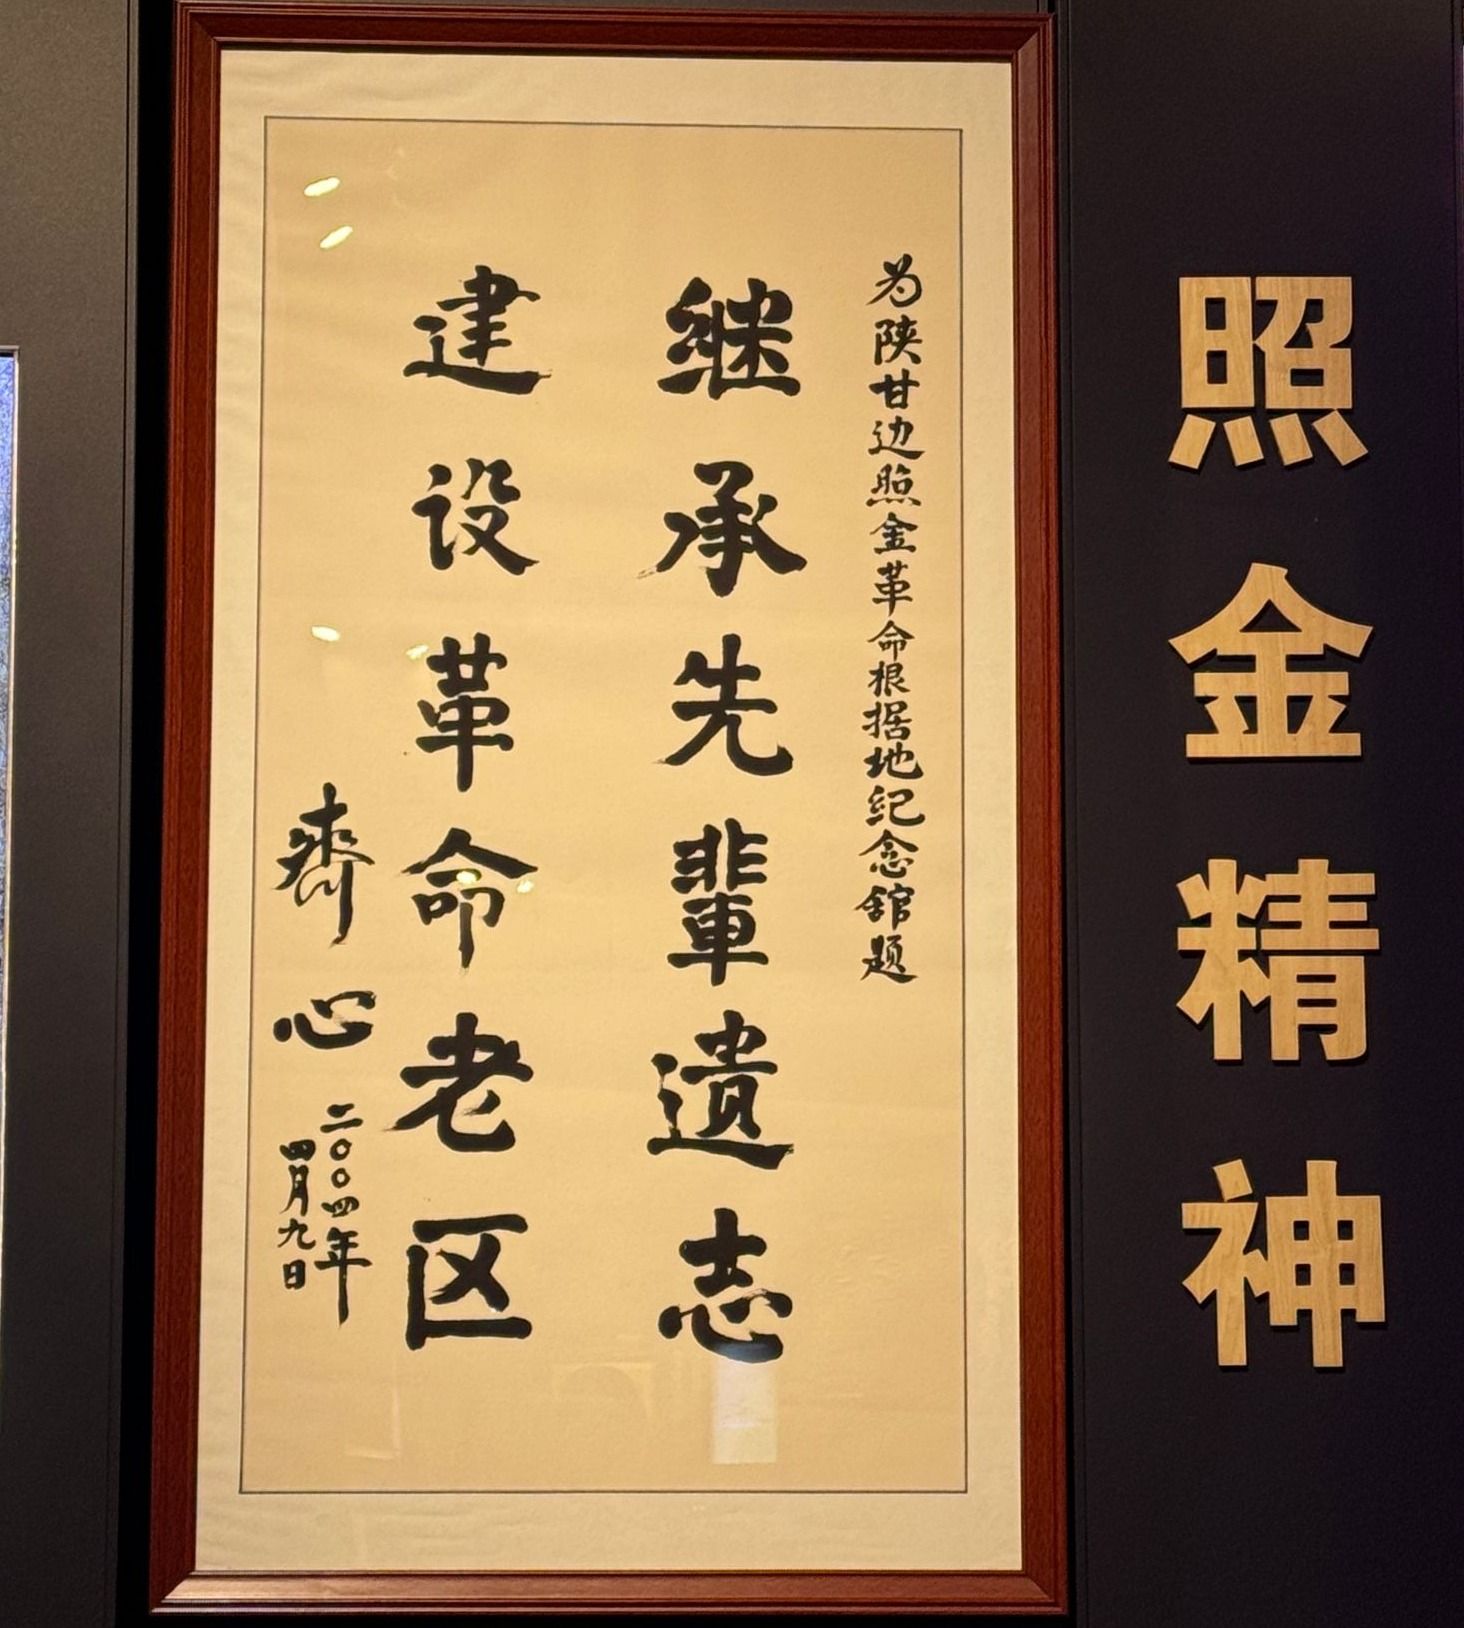 照金精神
为陕甘边照金革命根据地纪念馆题
继承先輩遗志
建设革命老区
齊心
二〇〇四年
四月九日